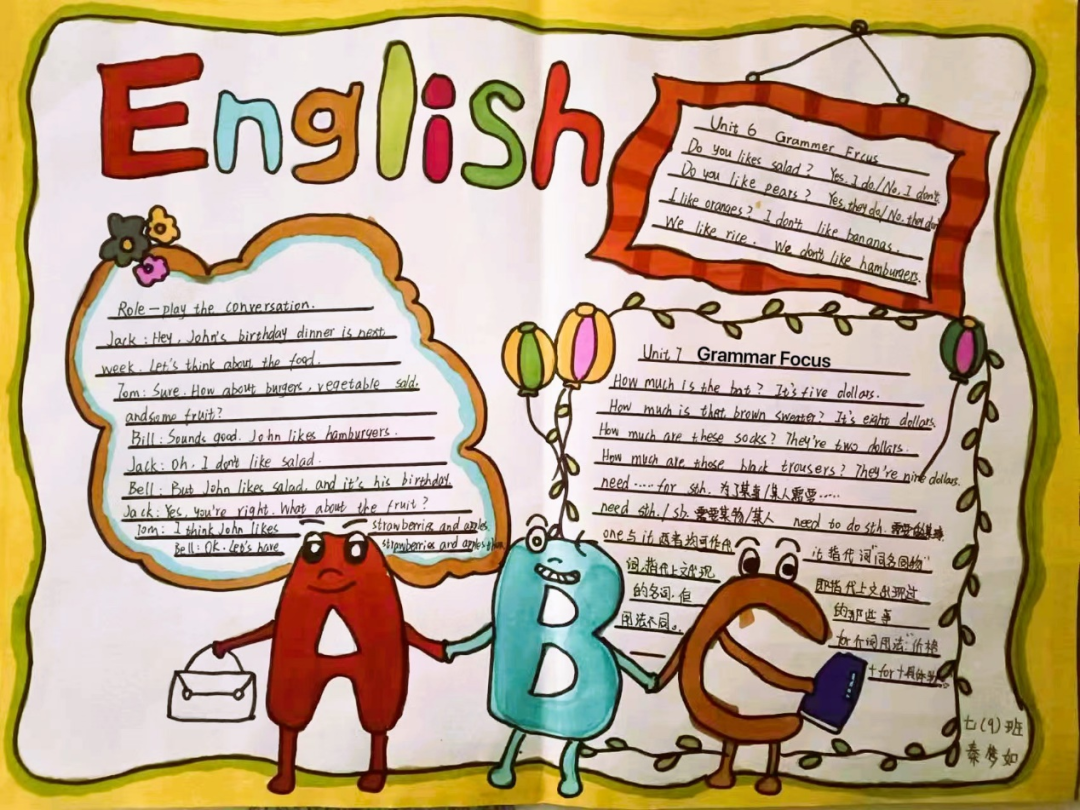 English
Unit 6 Grammer Frcus
Do you likes salad? Yes, I do/No, I don't.
Do you like pears? Yes, they do/No, they don'
I like oranges? I don't like bananas.
We like rice. We don't like hamburgers.
Role-play the conversation.
Jack: Hey, John's birthday dinner is next
week. Let's think about the food.
Tom: Sure. How about burgers, vegetable sald.
andsome fruit?
Bill: Sounds good. John likes hamburgers.
Jack: Oh, I don't like salad.
Bell: But John likes salad, and it's his birthday.
Jack: Yes, you're right. What about the fruit?
Tom: I think John likes strawberries and apples.
Bell: OK. Let's have strawberries and apples
Unit 7 Grammar Focus
How much is the hat? It's five dollars.
How much is that brown sweater? It's eight dollars.
How much are these socks? They're two dollars.
How much are those black trousers? They're nine dollars.
need.....for sth. 为了某事/某人需要.....
need sth./sb. 需要某物/某人 need to do sth. 需要做某事
one与it两者均可作代
词,指代上文出现
的名词,但
用法不同。
it指代词"同名同物"
即指代上文出现过
的那些事
A
B
C
七(9)班
秦梦如